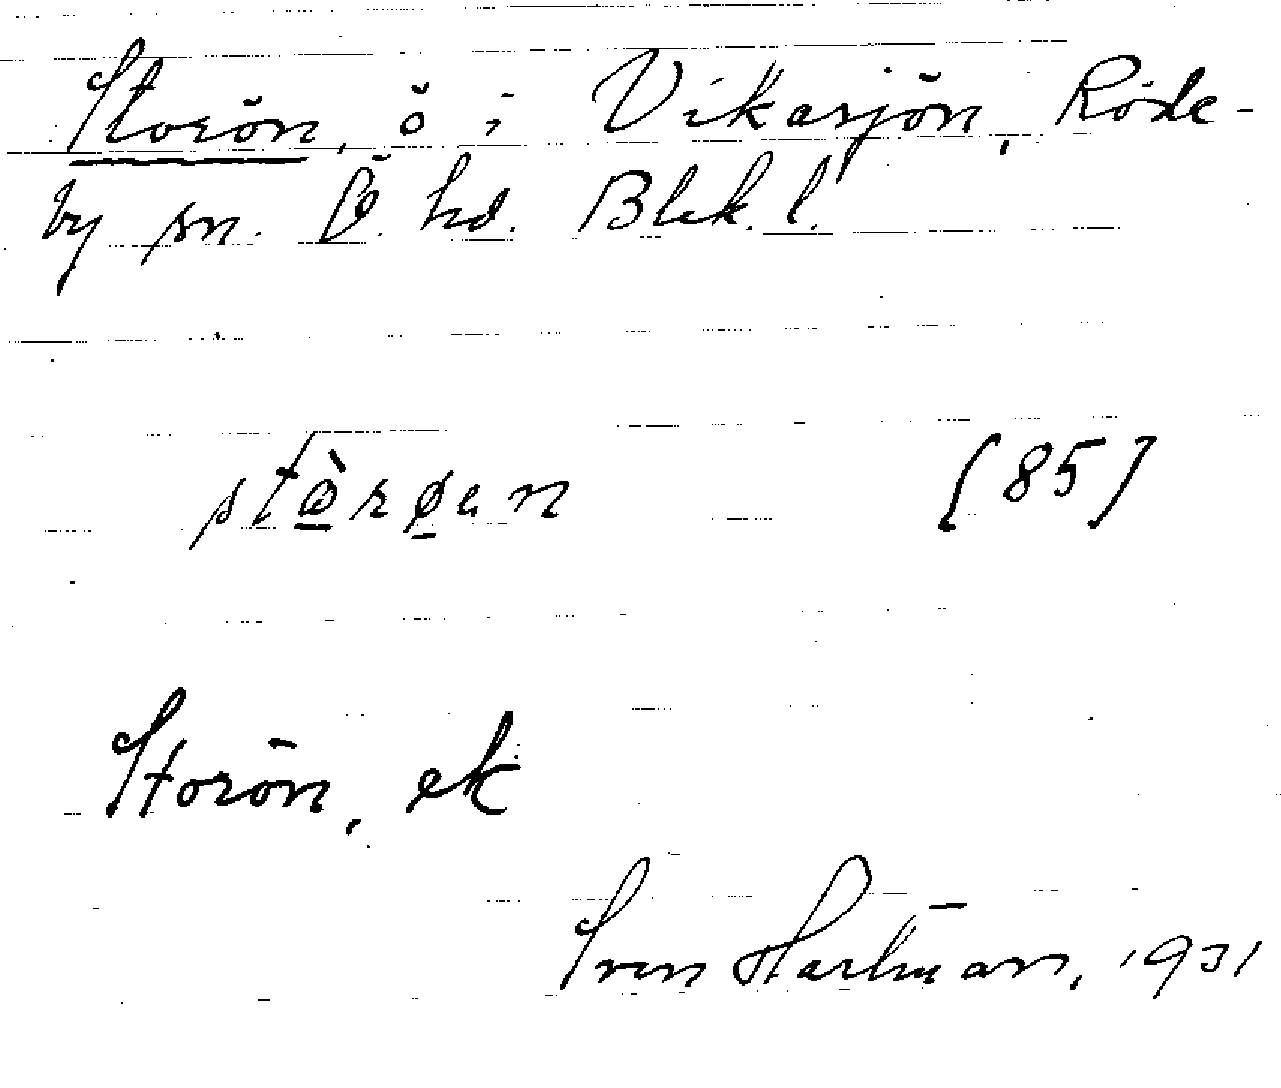 Storön, ö i Vikasjön, Röde-
by sn. Ö. hd. Blek. l.
stòrøen [85]
Storön, ek
Sven Hartman, 1931